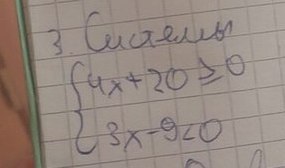 3. Системы
{4x+20≥0
3x-9<0